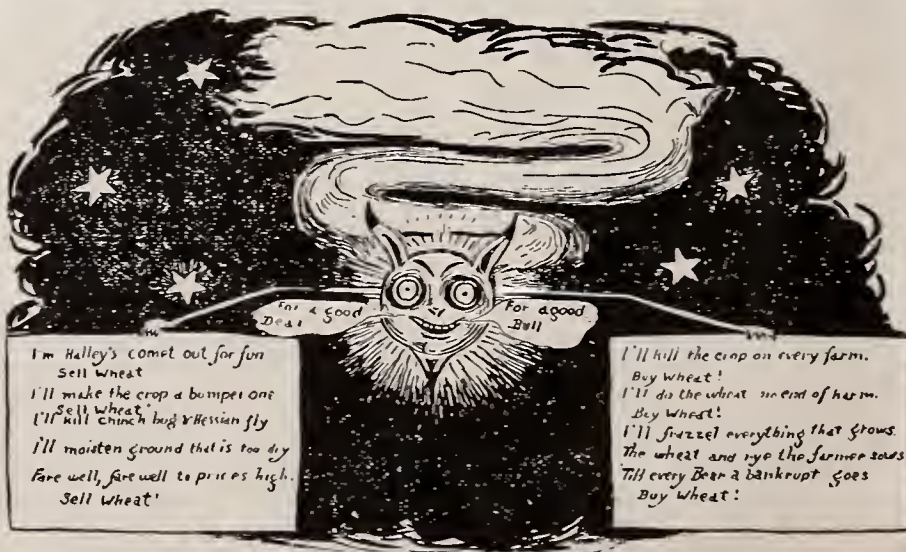 For a good
Deal
For a good
Bull
I'm Halley's comet out for fun
Sell wheat
I'll make the crop a bumper one
Sell wheat'
I'll kill chinch bug & Hessian fly
I'll moisten ground that is too dry
Fare well, fare well to prices high.
Sell Wheat'
I'll kill the crop on every farm.
Buy Wheat!
I'll do the wheat no end of harm.
Buy Wheat!
I'll frazzel everything that grows.
The wheat and rye the farmer sows
Till every Bear a bankrupt goes
Buy Wheat!